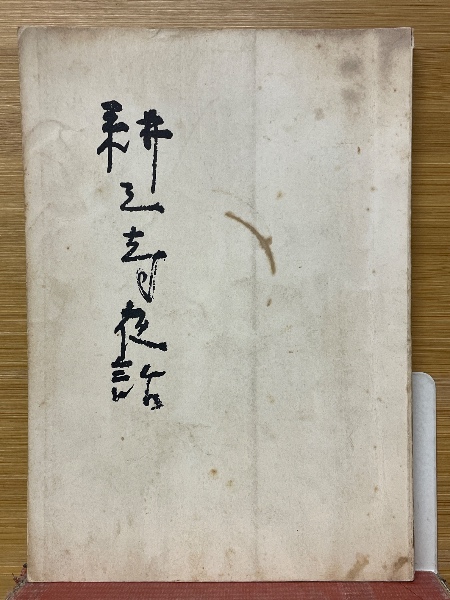 耕三寺夜話